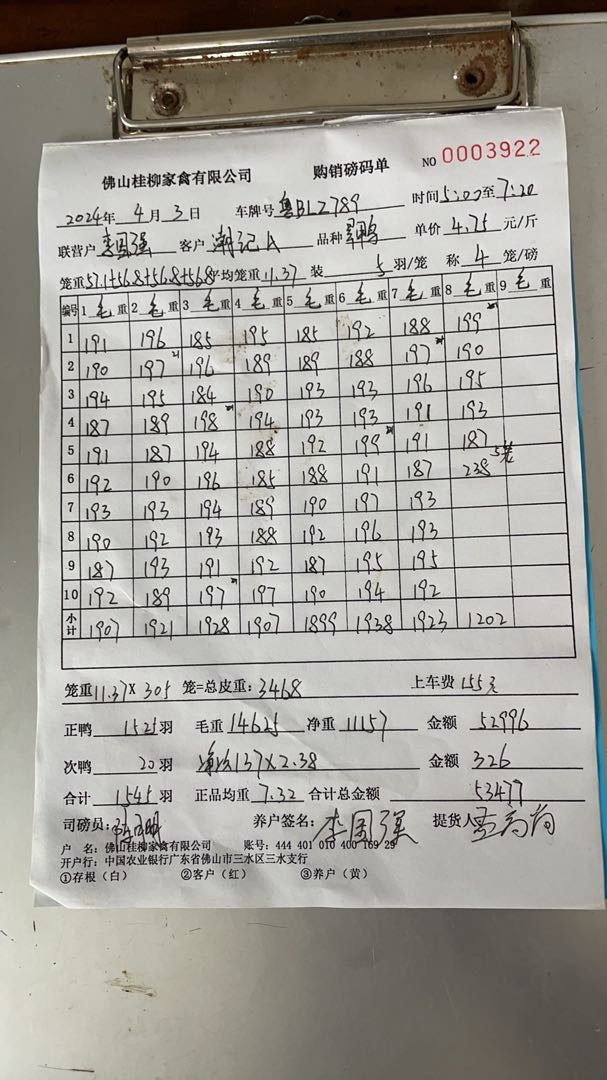 佛山桂柳家禽有限公司 购销磅码单 NO 0003922
2024年 4月 3日 车牌号 粤BLZ789 时间 5:00至7:20
联营户 李国强 客户 潮记A 品种 单价 4.75 元/斤
笼重 57.1+56.8+56.8+56.8 平均笼重 11.37 装 5 羽/笼 称 4 笼/磅
编号 1 毛重 2 毛重 3 毛重 4 毛重 5 毛重 6 毛重 7 毛重 8 毛重 9 毛重
1 191 196 185 195 185 192 188 199
2 190 197 196 189 189 188 197 190
3 194 195 184 190 193 193 196 195
4 187 189 198 194 193 193 191 193
5 191 187 194 188 192 199 191 187
6 192 190 196 185 188 191 187 238 5笼
7 193 193 194 189 190 197 193
8 190 192 193 188 192 196 193
9 187 193 191 192 187 195 195
10 192 189 197 197 190 194 192
小计 1907 1921 1928 1907 1899 1938 1923 1202
笼重 11.37 X 305 笼=总皮重: 3468 上车费 155元
正鸭 1525 羽 毛重 14625 净重 11157 金额 52996
次鸭 20 羽 137 X 2.38 金额 326
合计 1545 羽 正品均重 7.32 合计总金额 53477
司磅员: 养户签名: 李国强 提货人
户 名: 佛山桂柳家禽有限公司 账号: 444 401 010 400 169 29
开户行: 中国农业银行广东省佛山市三水区三水支行
①存根(白) ②客户(红) ③养户(黄)